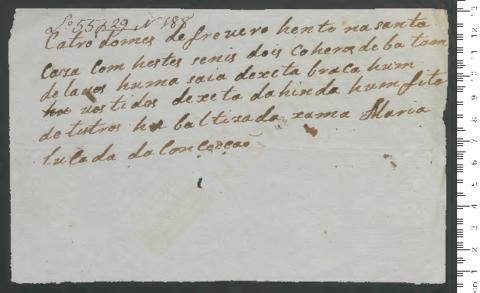 Lo 55 f 29 N 188
Catro domes de frovero hento na santa
Caza com hestes senis dois Coheros de batam
de laços huma saia de xeta braca hum
hu vostidos de xeta da hinda hum fito
de tutros he baltizada xama Maria
lucada da Conceçaõ